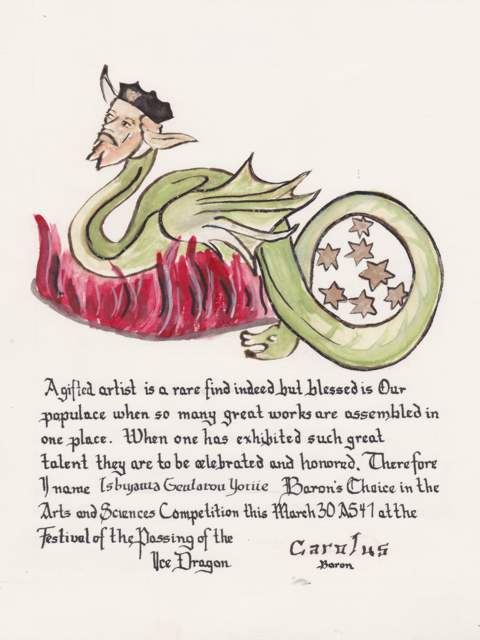 A gifted artist is a rare find indeed, but blessed is Our
populace when so many great works are assembled in
one place. When one has exhibited such great
talent they are to be celebrated and honored. Therefore
I name Ishiyama Gentarou Yoriie Baron's Choice in the
Arts and Sciences Competition this March 30 AS 47 at the
Festival of the Passing of the
Ice Dragon
Carolus
Baron